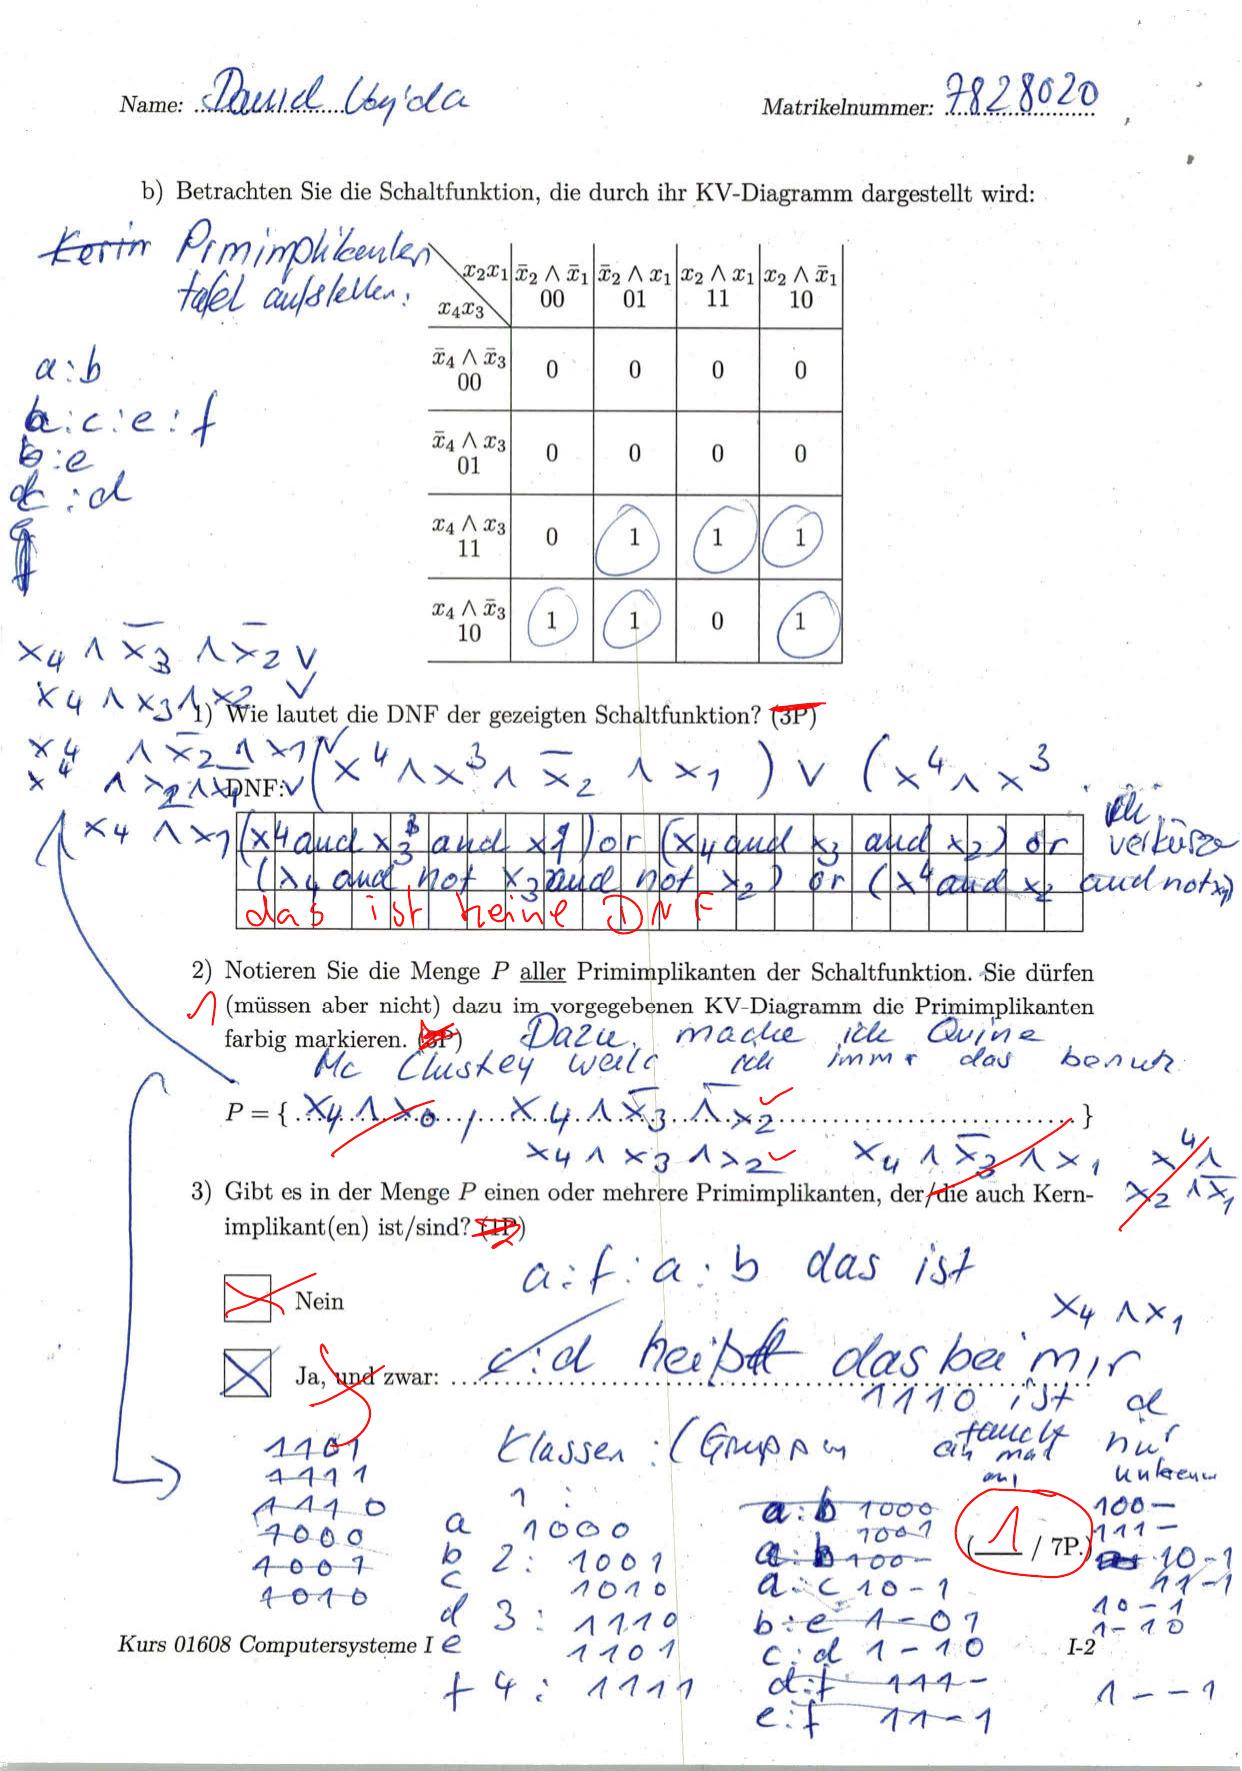 Name: David Vajda Matrikelnummer: 7828020
b) Betrachten Sie die Schaltfunktion, die durch ihr KV-Diagramm dargestellt wird:
Kerim Primimplikanten
tafel aufstellen:
x₂x₁ x̄₂ ∧ x̄₁ x̄₂ ∧ x₁ x₂ ∧ x₁ x₂ ∧ x̄₁
x₄x₃ 00 01 11 10
x̄₄ ∧ x̄₃
00 0 0 0 0
x̄₄ ∧ x₃
01 0 0 0 0
x₄ ∧ x₃
11 0 1 1 1
x₄ ∧ x̄₃
10 1 1 0 1
a:b
a:c:e:f
b:e
c:d
x4 ∧ x̄3 ∧ x̄2 ∨
x4 ∧ x3 ∧ x2 ∨
1) Wie lautet die DNF der gezeigten Schaltfunktion? (3P)
x4 ∧ x̄2 ∧ x1 ∨
DNF: ∨ (x4 ∧ x3 ∧ x̄2 ∧ x1) ∨ (x4 ∧ x3
x4 ∧ x1
(x4 and x3 and x1) or (x4 and x3 and x2) or verkürze
(x4 and not x3 and not x2) or (x4 and x2 and not x1)
das ist keine DNF
2) Notieren Sie die Menge P aller Primimplikanten der Schaltfunktion. Sie dürfen
1 (müssen aber nicht) dazu im vorgegebenen KV-Diagramm die Primimplikanten
farbig markieren. Dazu mache ich Quine
Mc Cluskey weil ich immer das benutz
P = { x4 ∧ x0 , x4 ∧ x̄3 ∧ x̄2 }
x4 ∧ x3 ∧ x2 x4 ∧ x̄2 ∧ x1 x4 ∧
x2 ∧ x̄1
3) Gibt es in der Menge P einen oder mehrere Primimplikanten, der/die auch Kern-
implikant(en) ist/sind?
a:f:a:b das ist
Nein
x4 ∧ x1
Ja, und zwar: c:d heißt das bei mir
1110 ist d
taucht nur
ein mal
Klassen: (Gruppen
1101
1111
1110
1000
1001
1010
1:
a 1000
b 2: 1001
c 1010
d 3: 1110
e 1101
f 4: 1111
a:b 1000
1001
a:b 100-
a:c 10-1
b:e 1-01
c:d 1-10
d:f 111-
e:f 11-1
(1 / 7P.)
100-
111-
10-1
11-1
10-1
1-10
1--1
Kurs 01608 Computersysteme I I-2